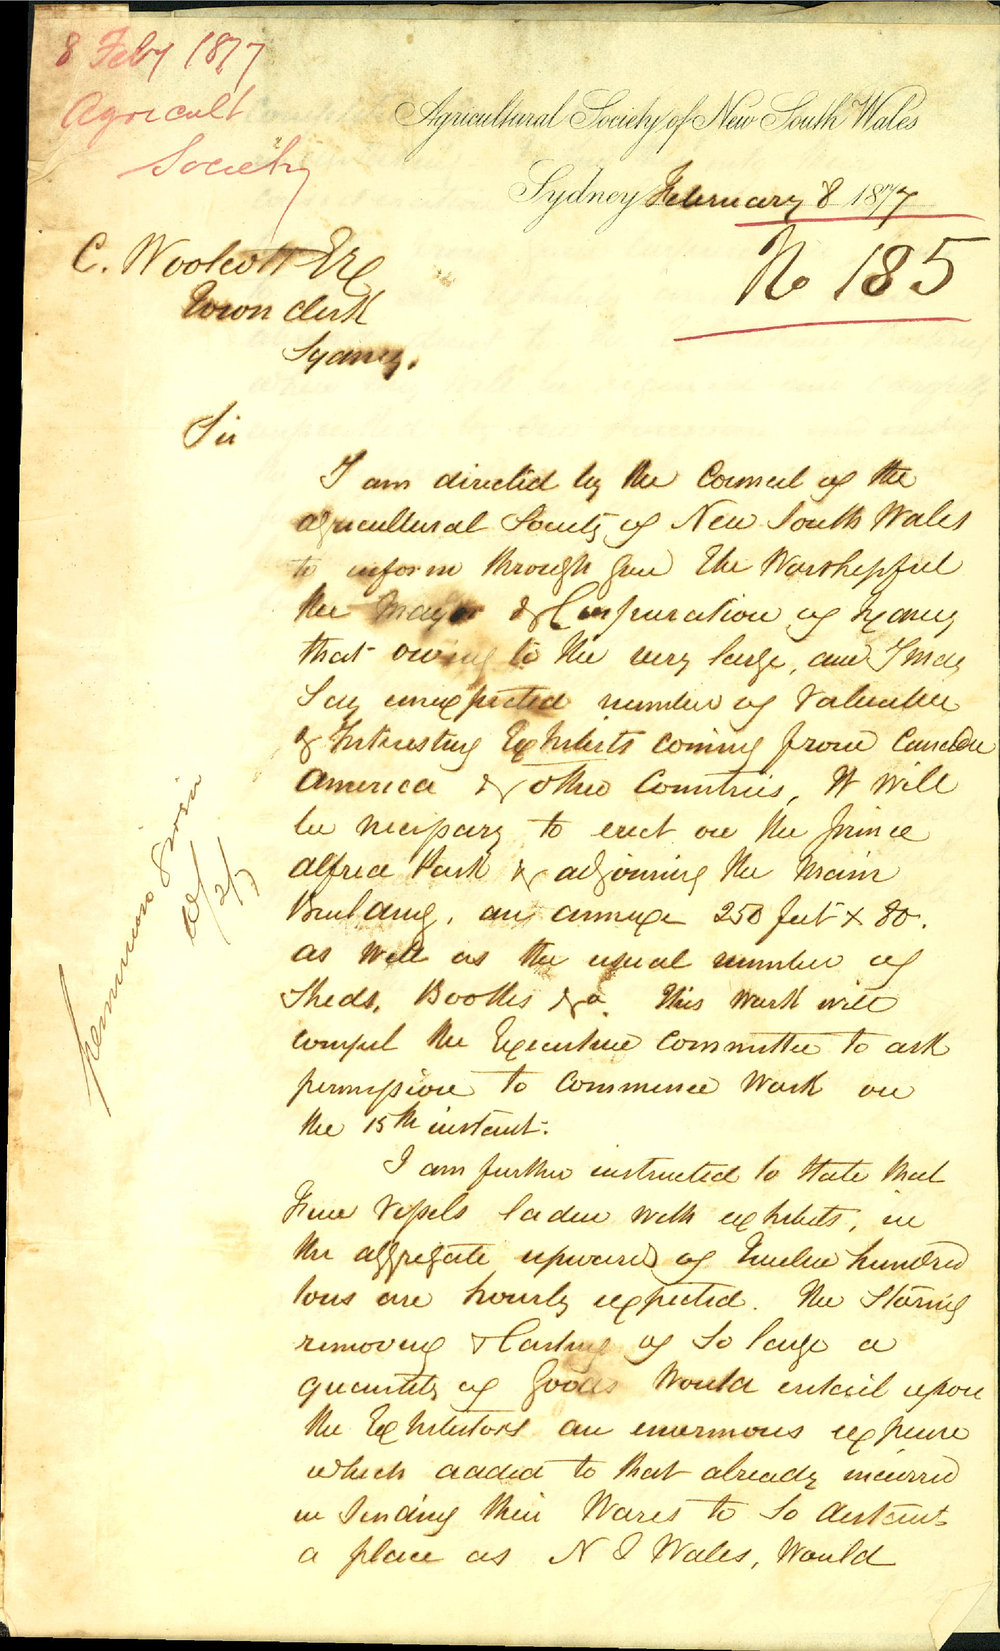 8 Feby 1877
Agricult
Society
Agricultural Society of New South Wales
Sydney February 8 1877
No 185
C. Woolcott Esq
Town Clerk
Sydney.
Sir
I am directed by the Council of the
Agricultural Society of New South Wales
to inform through you the Worshipful
the Mayor & Corporation of Sydney
that owing to the very large, and I may
Say unexpected number of Valuable
& Interesting Exhibits coming from Canada
America & other Countries, It will
be necessary to erect on the Prince
Alfred Park & adjoining the Main
Building, an annexe 250 feet x 80.
as well as the usual number of
Sheds, Booths &c. This work will
compel the Executive Committee to ask
permission to Commence Work on
the 15th instant.
I am further instructed to State that
Vessels laden with exhibits, in
the aggregate upwards of Twelve hundred
tons are hourly expected. The Storing
removing & Carting of So large a
quantity of Goods Would entail upon
the Exhibitors an enormous expense
which added to that already incurred
in Sending their Wares to So distant
a place as N S Wales, Would